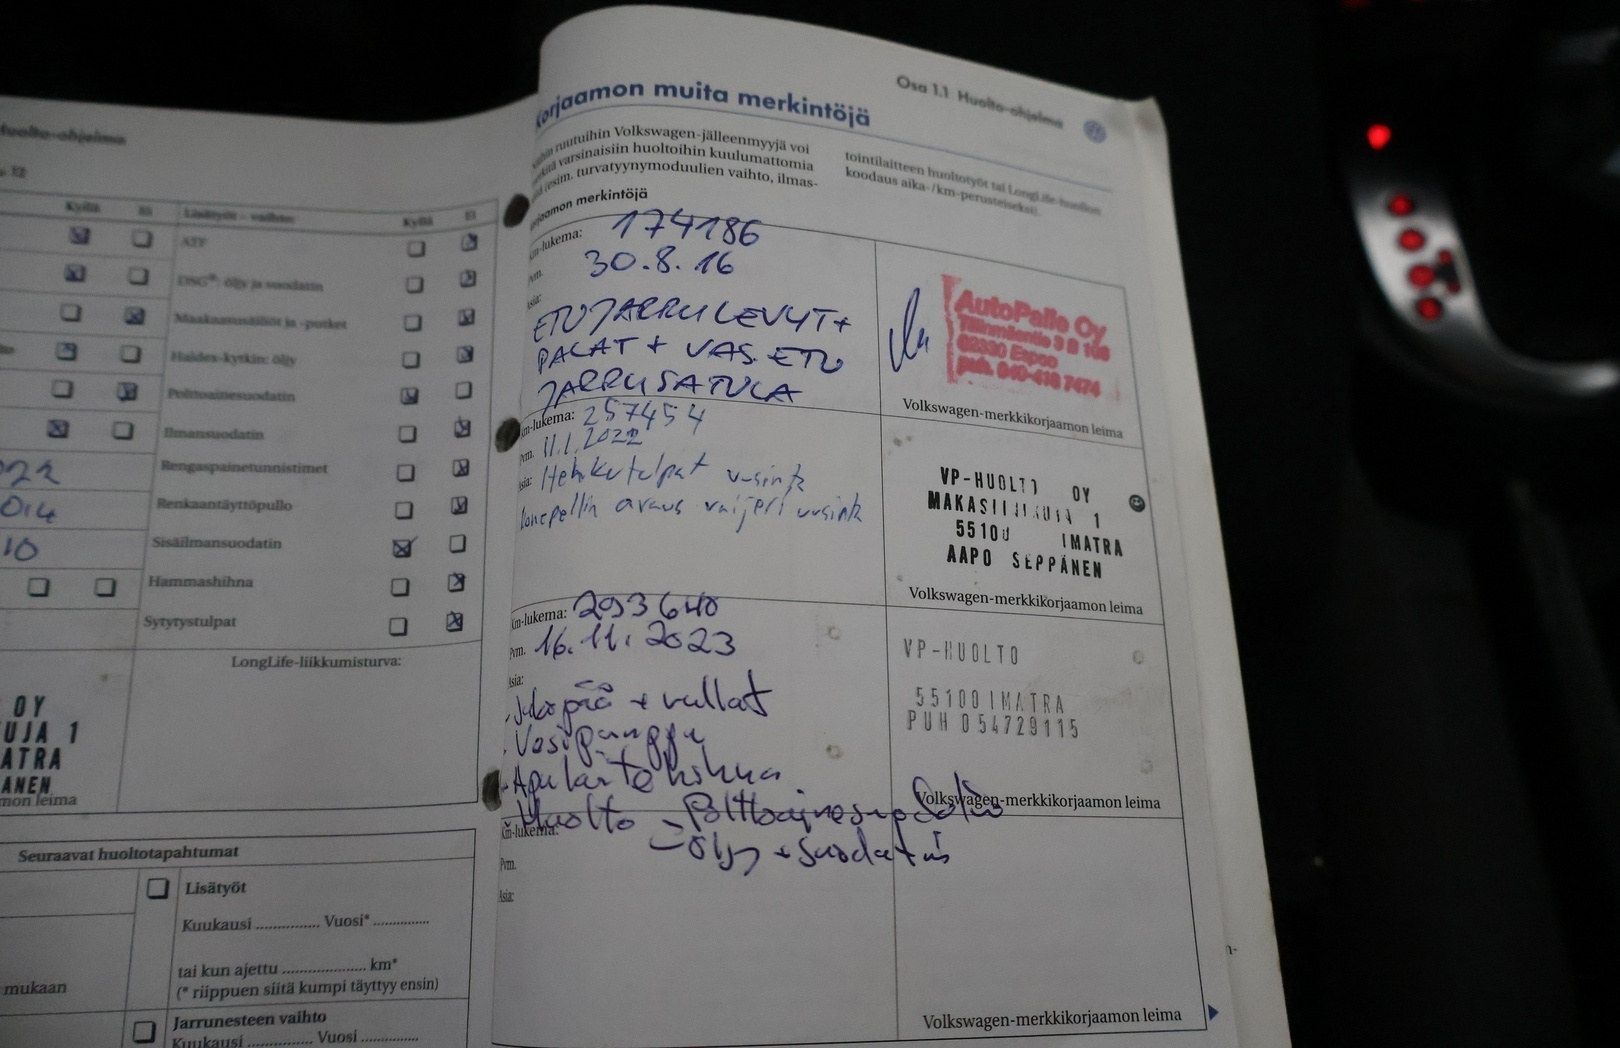 Huolto-ohjelma
Kyllä Ei Lisätyöt – vaihto: Kyllä Ei
ATF
DSG®: öljy ja suodatin
Maakaasusäiliöt ja -putket
Haldex-kytkin: öljy
Polttoainesuodatin
Ilmansuodatin
Rengaspainetunnistimet
Renkaantäyttöpullo
Sisäilmansuodatin
Hammashihna
Sytytystulpat
LongLife-liikkumisturva:
OY
UJA 1
MATRA
ANEN
mon leima
Seuraavat huoltotapahtumat
Lisätyöt
Kuukausi ................ Vuosi* ..............
tai kun ajettu ..................... km*
(* riippuen siitä kumpi täyttyy ensin)
mukaan
Jarrunesteen vaihto
Kuukausi ................ Vuosi ..............
Osa 1.1 Huolto-ohjelma
Korjaamon muita merkintöjä
ruutuihin Volkswagen-jälleenmyyjä voi
varsinaisiin huoltoihin kuulumattomia
(esim. turvatyynymoduulien vaihto, ilmas-
tointilaitteen huoltotyöt tai LongLife-huollon
koodaus aika-/km-perusteiseksi).
Korjaamon merkintöjä
Km-lukema: 174186
Pvm. 30.8.16
Asia:
ETUJARRULEVYT+
PALAT + VAS. ETU
JARRUSATULA
AutoPalle Oy
02330 Espoo
puh. 040-418 7474
Volkswagen-merkkikorjaamon leima
Km-lukema: 257454
Pvm. 11.1.2022
Asia: Hehkutulpat uusinta
Konepellin avaus vaijeri uusinta
VP-HUOLTO OY
MAKASIININKUJA 1
55100 IMATRA
AAPO SEPPÄNEN
Volkswagen-merkkikorjaamon leima
Km-lukema: 293640
Pvm. 16.11.2023
Asia:
- Jakopää + rullat
- Vesipumppu
- Apulaitehihna
- Huolto - Polttoainesuodatin
- Öljy + suodatin
VP-HUOLTO
55100 IMATRA
PUH 054729115
Volkswagen-merkkikorjaamon leima
Km-lukema:
Pvm.
Asia:
Volkswagen-merkkikorjaamon leima